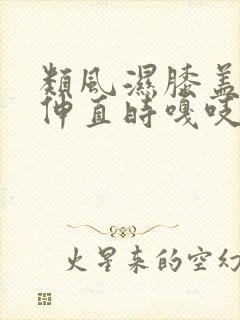 類風濕膝盖
伸直時嘎吱
火星来的空幻